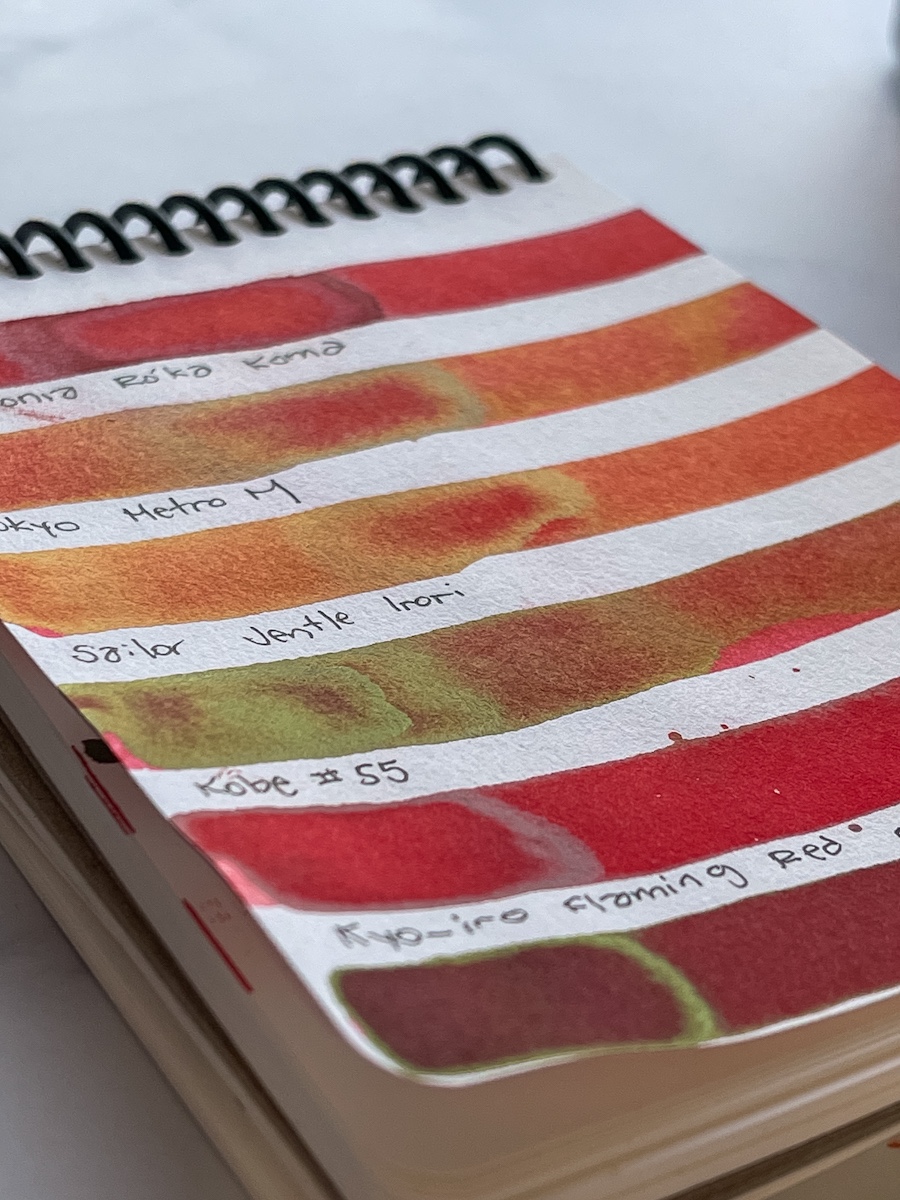 onia Róka Koma
okyo Metro M
Sailor Jentle Irori
Kobe #55
Kyo-iro Flaming Red